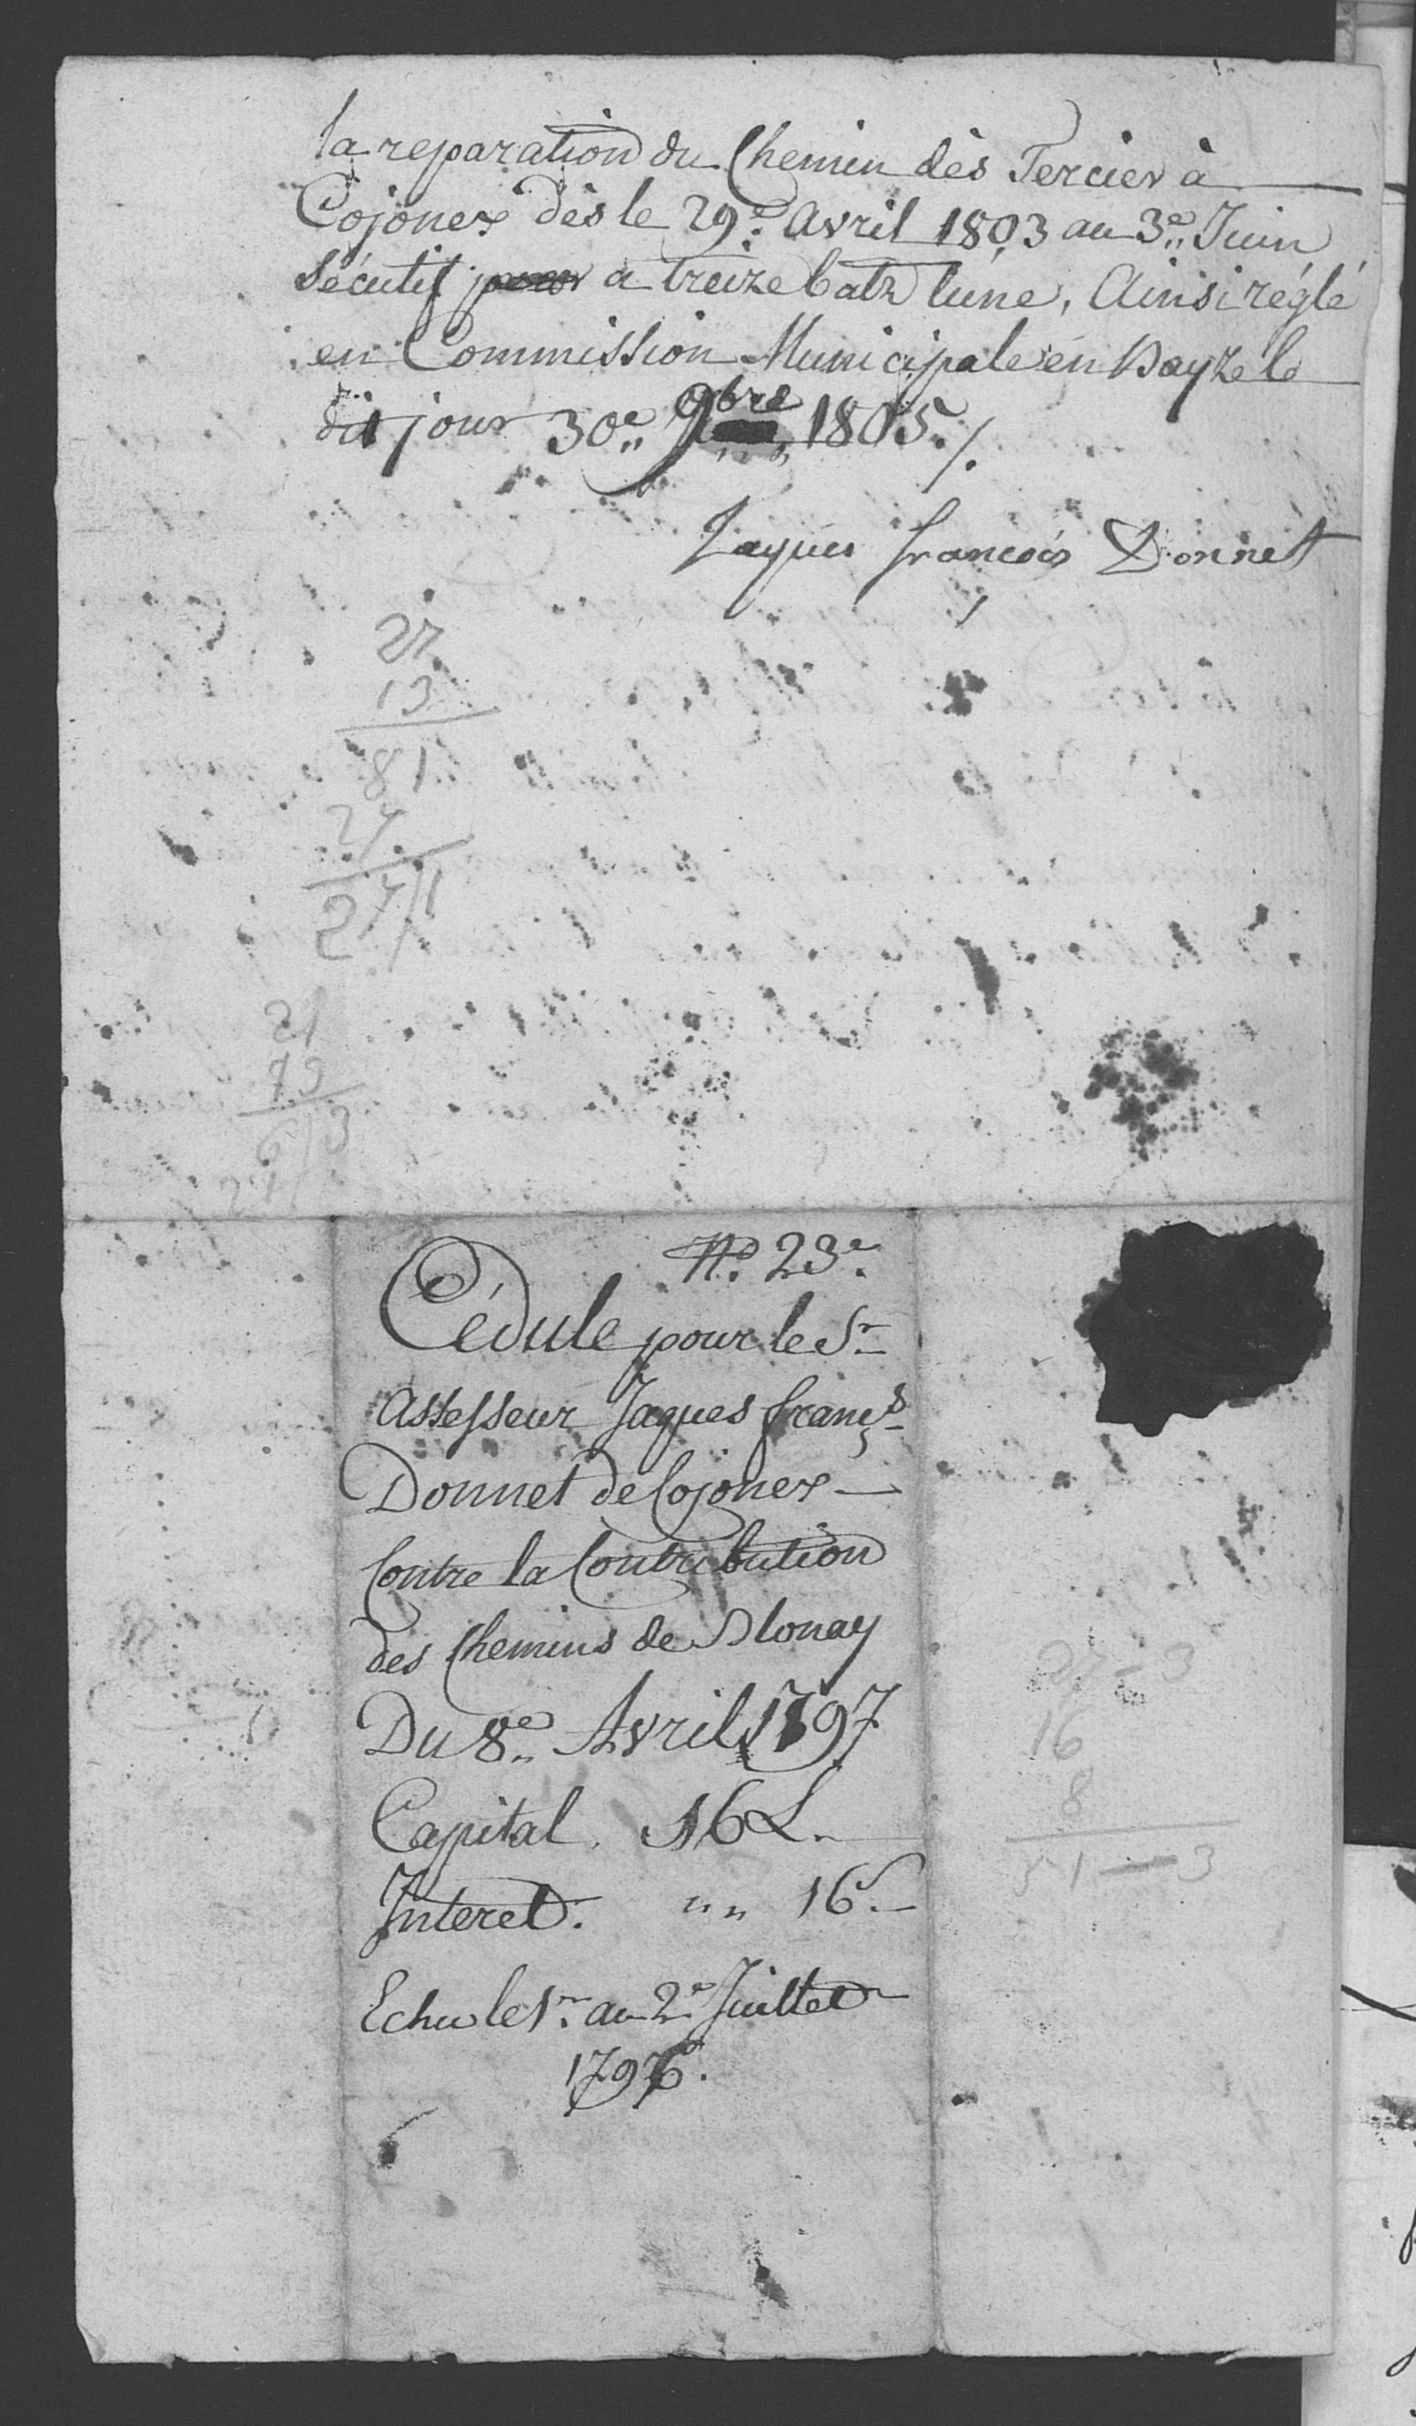 la reparation du Chemin dès Tercier à
Cojonex dès le 29.e Avril 1803 au 3.e Juin
sécutif a treize batz lúne, Ainsi réglé
en Commission Municipale en Bayze le
dit jour 30.e 9bre 1805./.
Jaques francois Donnet
27
13
81
27
27/1
21
13
6/3
21
No. 23e.
Cédule pour le Sr
assesseur Jaques françs
Donnet de Cojonex
Contre la Contribution
des Chemins de Blonay
Du 8.e Avril 1797
Capital. 16 L.
Interet. „ „ 16 s.
Echu le 1r. au 2e Juillet
1796.
27 - 3
16
8
51 — 3